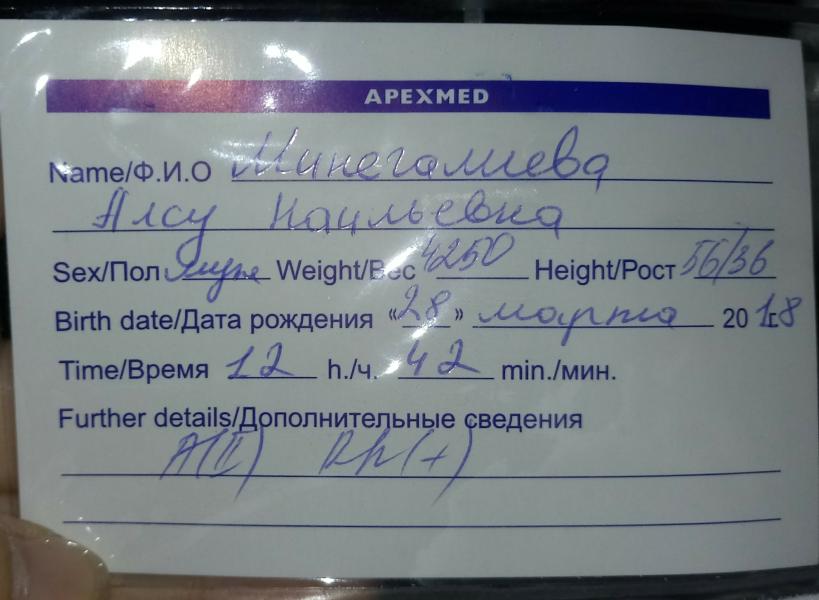 APEXMED
Name/Ф.И.О Минегалиева
Алсу Наильевна
Sex/Пол муж Weight/Вес 4250 Height/Рост 56/36
Birth date/Дата рождения «28» марта 2018
Time/Время 12 h./ч. 42 min./мин.
Further details/Дополнительные сведения
A(II) Rh(+)